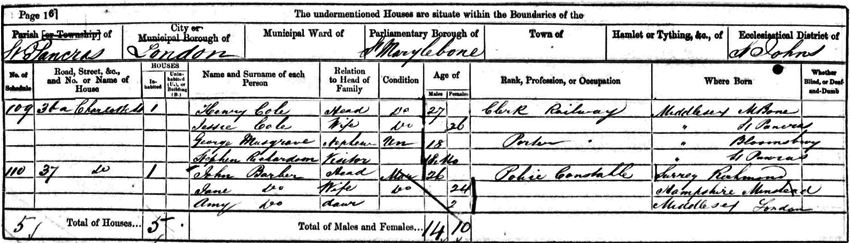 Page 16] The undermentioned Houses are situate within the Boundaries of the
Parish [or Township] of City or Municipal Borough of Municipal Ward of Parliamentary Borough of Town of Hamlet or Tything, &c., of Ecclesiastical District of
St Pancras London St Marylebone St Johns
No. of Schedule Road, Street, &c., and No. or Name of House HOUSES Inhabited Uninhabited (U.), or Building (B.) Name and Surname of each Person Relation to Head of Family Condition Age of Males Females Rank, Profession, or Occupation Where Born Whether Blind, or Deaf-and-Dumb
109 36a Charlotte St 1 Henry Cole Head Do 27 Clerk Railway Middlesex M Bone
Jessie Cole Wife Do 26 " St Pancras
George Musgrave Nephew Un 18 Porter " " Bloomsbury
Stephen Richardson Visitor " St Pancras
110 37 Do 1 John Barber Head Mar 26 Police Constable Surrey Richmond
Jane Do Wife Do 24 Hampshire Minstead
Amy Do daur 2 Middlesex London
5 Total of Houses... 5 Total of Males and Females... 14 10